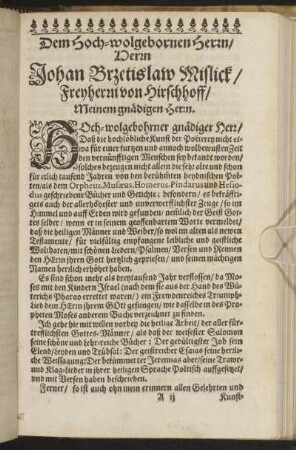 Dem Hoch-wolgebornen Herrn/
Herrn
Johan Brzetislaw Mislick/
Freyherrn von Hirschhoff/
Meinem gnädigen Herrn.
HOch-wolgebohrner gnädiger Herr/
Daß die hochlöbliche Kunst der Poeterey nicht et-
wa für einer kurtzen und annoch wolbewusten Zeit
den vernünfftigen Menschen sey bekant worden/
solches bezeugen nicht allein die sehr alte und schon
für etlich tausend Jahren von den berühmten heydnischen Poë-
ten/als dem Orpheus, Musæus, Homerus, Pindarus und Helio-
dus geschriebene Bücher und Getichte; besondern/ es bekräffti-
ges auch der allerhöhester und unverwerfflichster Zeuge/ so im
Himmel und auff Erden wird gefunden/ neulich der Geist Got-
tes selber/ wenn er in seinem geoffenbartem Worte vermeldet/
daß die heiligen Männer und Weiber/so wol im alten als newen
Testamente/ für vielfältig empfangene leibliche und geistliche
Wolthaten/mit schönen Liedern/Psalmen/ Versen und Reimen
den HErrn jhren Gott hertzlich gepriesen/ und seinen mächtigen
Namen herrlich erhöhet haben.
Es sind schon mehr als dreytausend Jahr verflossen/ da Mo-
ses mit den Kindern Israel (nach dem sie aus der Hand des Wü-
terichs Pharao errettet waren/) ein Frewdenreiches Triumph-
Lied dem HErrn jhrem GOtt gesungen/ wie dasselbe in des Pro-
pheten Moses anderm Buche verzeichnet zu finden.
Ich gehe hie mit willen vorbey die heilige Arbeit/ der aller für-
trefflichsten Gottes-Männer/ als daß der weisester Salomon
seine schöne und lehr-reiche Bücher: Der gedültigster Job sein
Elend/Leyden und Trübsal: Der geistreicher Esaias seine herrli-
che Weissagung: Der bekümmerter Jeremias aber/seine Trawr-
und Klag-Lieder in jhrer heiligen Sprache Poëtisch auffgesetzet/
und mit Versen haben beschrieben.
Ferner/ so ist auch ohn mein erinnern allen Gelehrten und
A ij Kunst-